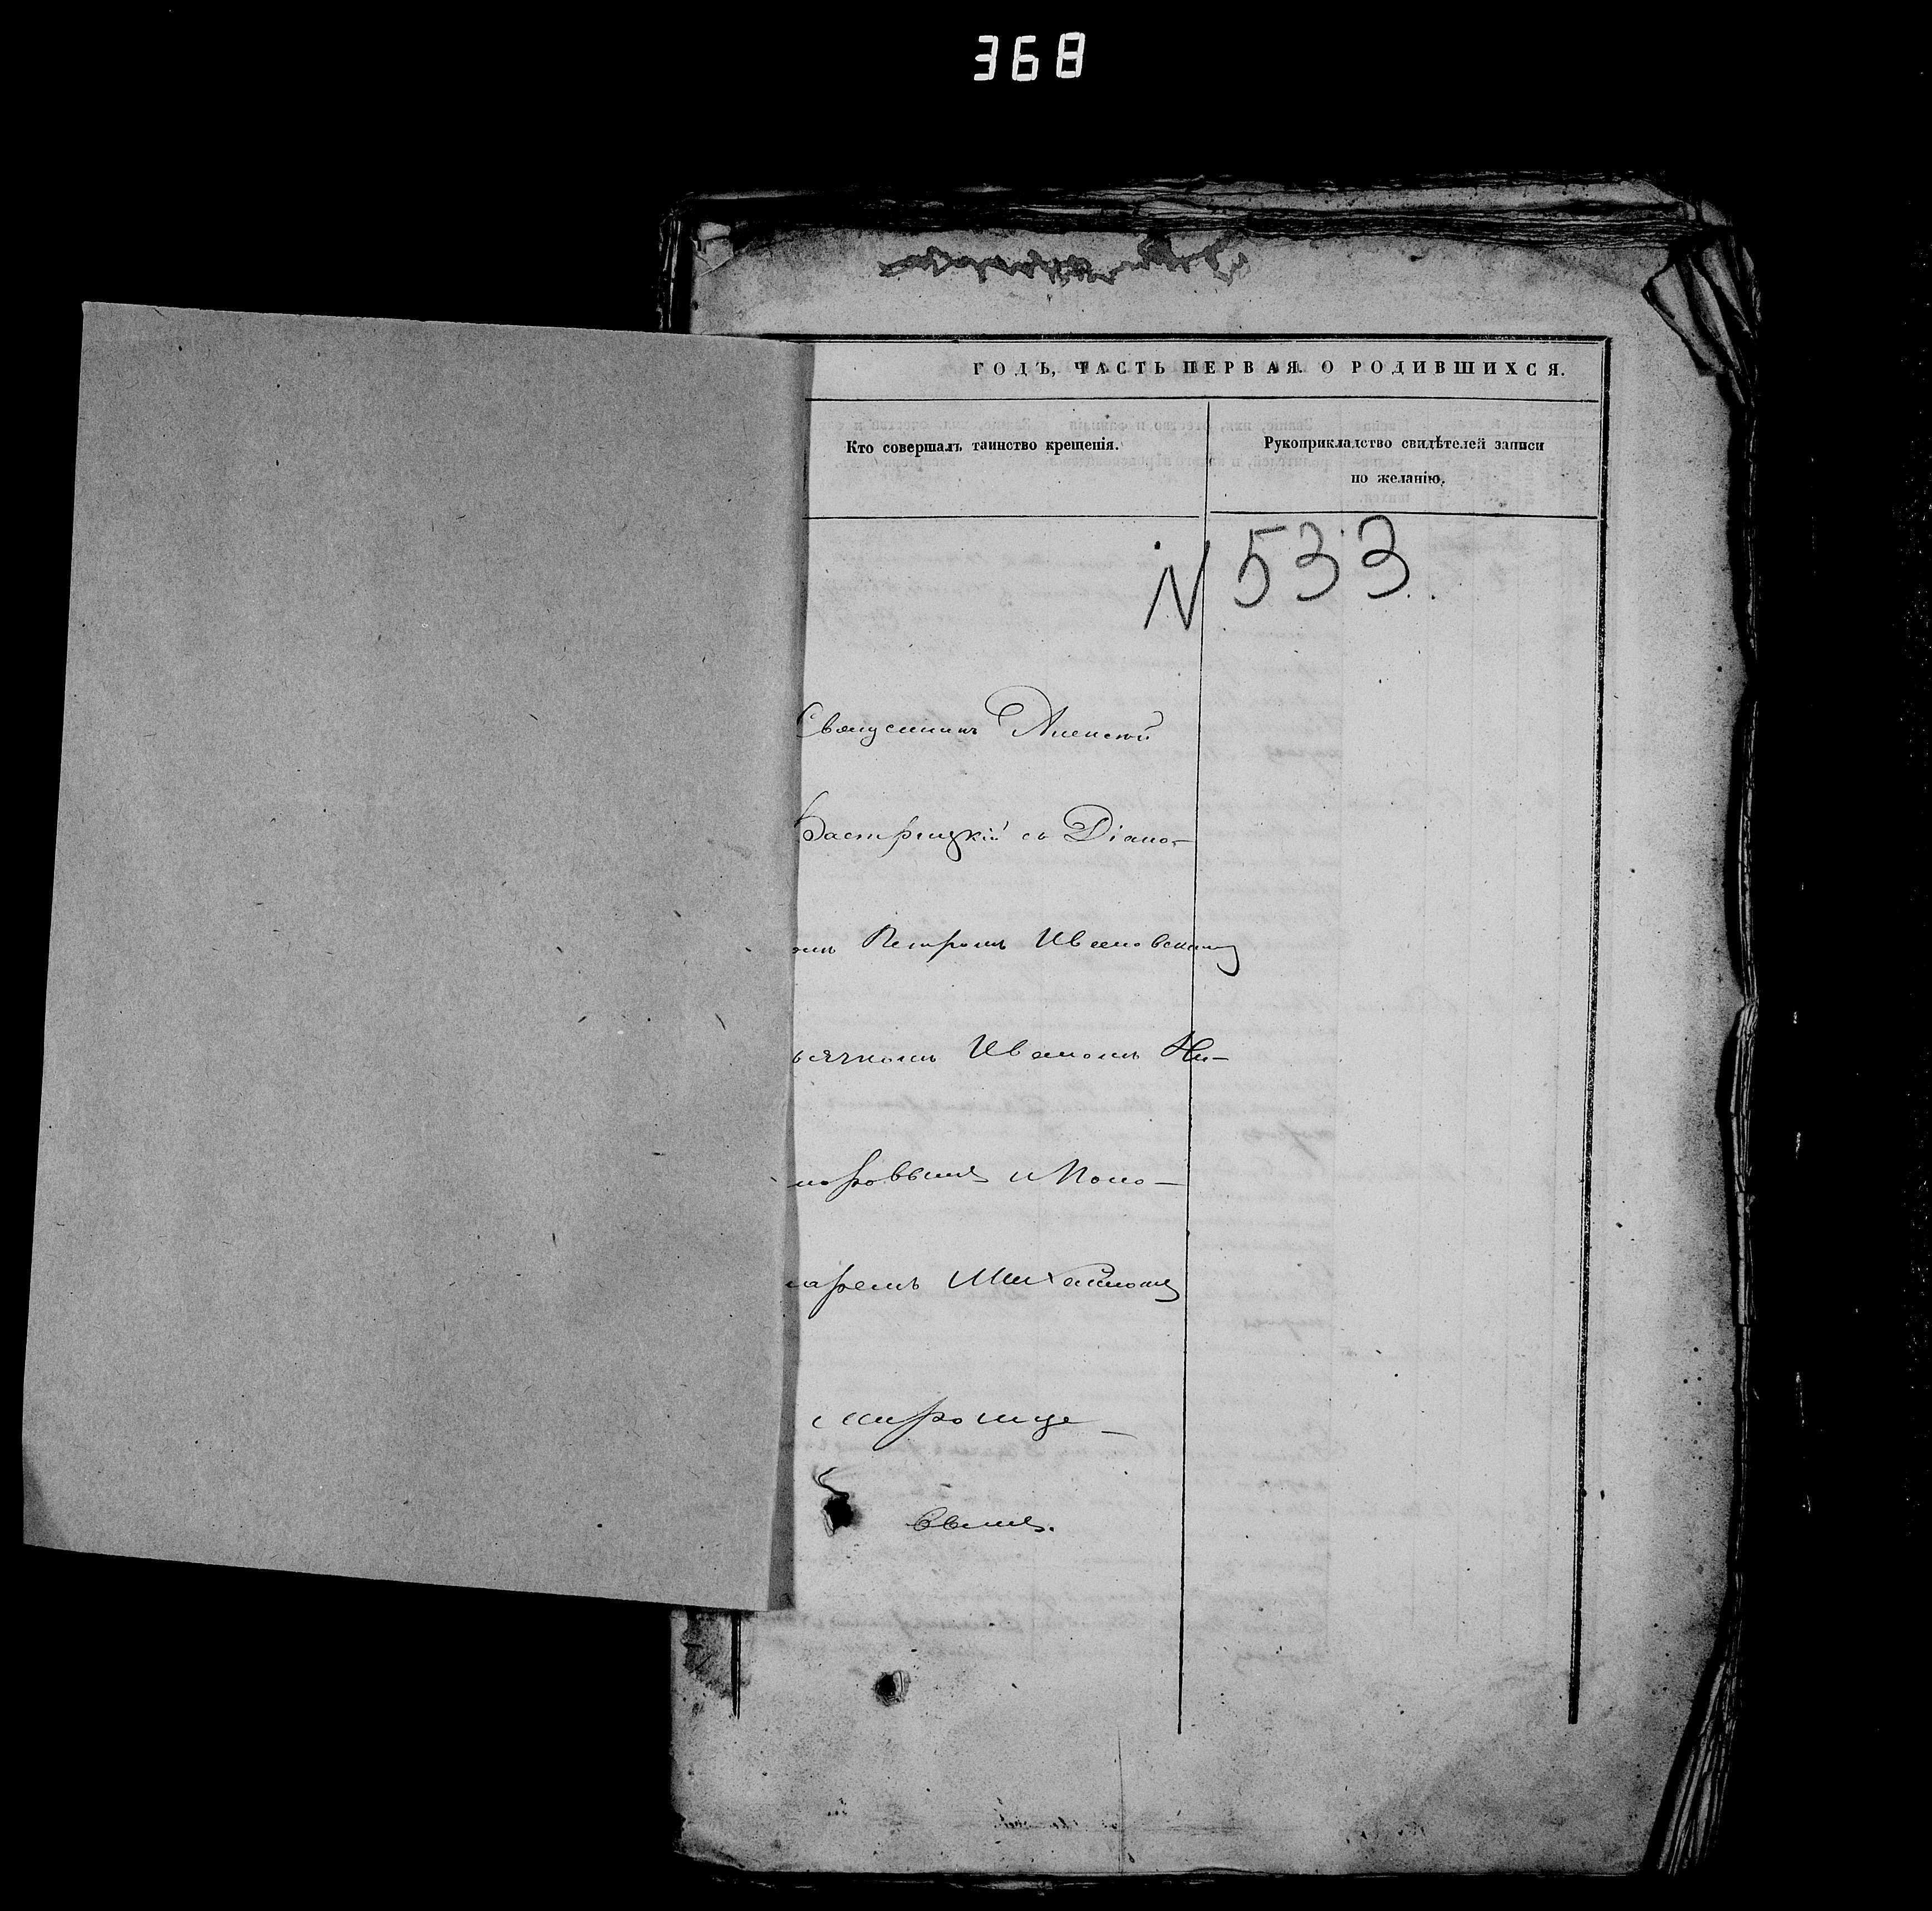 368
ГОДЪ, ЧАСТЬ ПЕРВАЯ. О РОДИВШИХСЯ.
Кто совершалъ таинство крещенія.
Рукоприкладство свидѣтелей записи
по желанію.
N 533
Священникъ Алексѣй
Бастрицкій съ Діако-
омъ Петромъ Ивановскимъ
ьячкомъ Иваномъ Ни-
норовымъ и Поно-
маремъ Михаиломъ
Мироице-
вымъ.